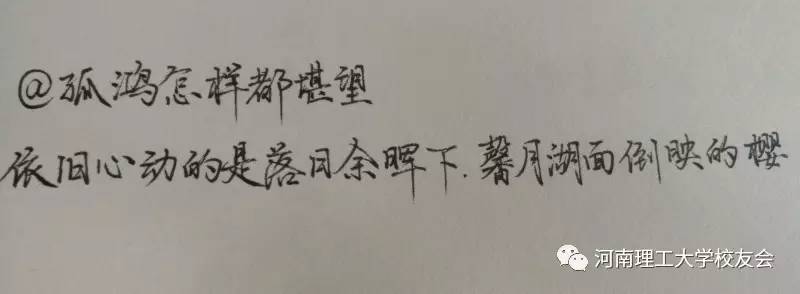 @孤鸿怎样都堪望
依旧心动的是落日余晖下.馨月湖面倒映的樱
河南理工大学校友会